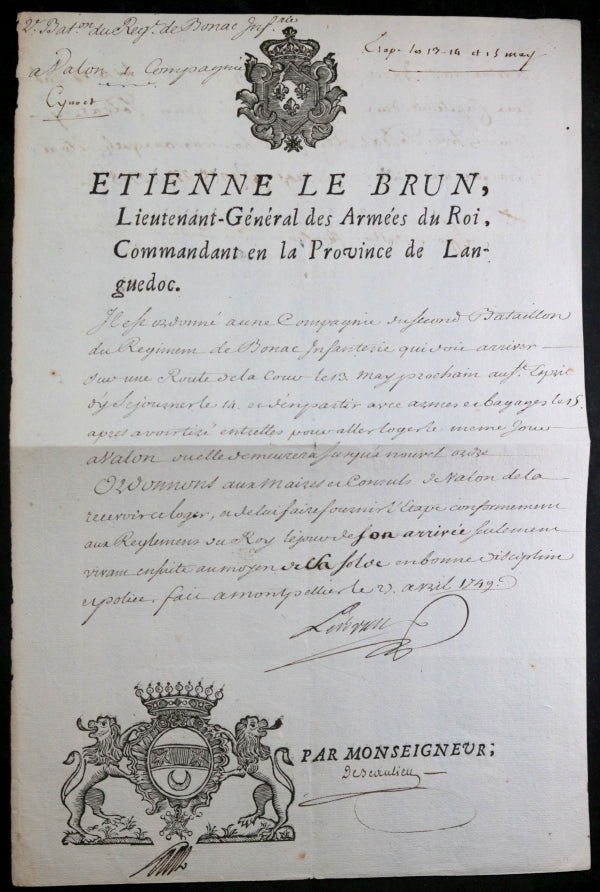 2.e Bat.on du Reg.t de Bonac Inf.rie
a Valon 1 Compagnie
Etape les 13. 14 et 15 may
ETIENNE LE BRUN,
Lieutenant-Général des Armées du Roi,
Commandant en la Province de Lan-
guedoc.
Il est ordonné a une Compagnie du second Bataillon
du Regiment de Bonac Infanterie qui doit arriver
sur une Route de la Cour le 13. may prochain au St. Esprit
d'y Sejourner le 14. et d'en partir avec armes et bagages le 15.
apres avoir tiré entr'elles pour aller loger le meme jour
a Valon ou elle demeurera jusqu'a nouvel ordre
Ordonnons aux Maires et Consuls de Valon de la
recevoir et loger, et de luy faire fournir l'Etape conformement
aux Reglemens du Roy le jour de son arrivée seulement
vivant ensuite au moyen de sa solde en bonne discipline
et police. fait a montpellier le 2. avril 1749.
Lebrun
PAR MONSEIGNEUR;
Debeaulieu